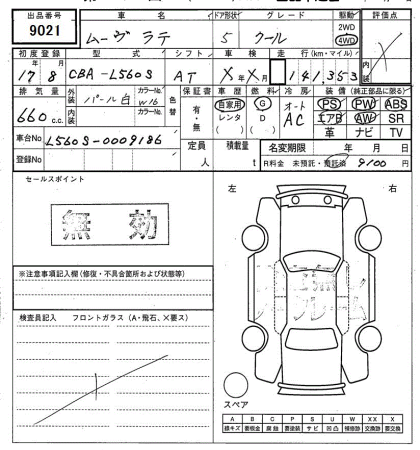 出品番号 車名 ドア形状 グレード 駆動 評価点
9021 ムーヴ ラテ 5 クール 2WD 4WD
初度登録 型式 シフト 車検 走行 (km・マイル) 内装
17年 8月 CBA-L560S AT X年X月 141,353
排気量 外装 カラーNo. 色替 保証書 車歴 燃料 冷房 装備 (純正部品に限る)
660 c.c. パール白 W16 有・無 自家用 レンタ G D オート AC PS PW ABS
内装 カラーNo. エアB AW SR
革 ナビ TV
車台No L560S-0009186 定員 人 積載量 t 名変期限 年 月 日
登録No R料金 未預託・預託済 9100
セールスポイント 左 右
無効
※注意事項記入欄(修復・不具合箇所および状態等)
検査員記入 フロントガラス (A・飛石、X要ス)
フレーム
スペア
A B C P S U W XX X
線キズ 要板金 腐蝕 要塗装 サビ 凹凸 補修跡 交換跡 要交換